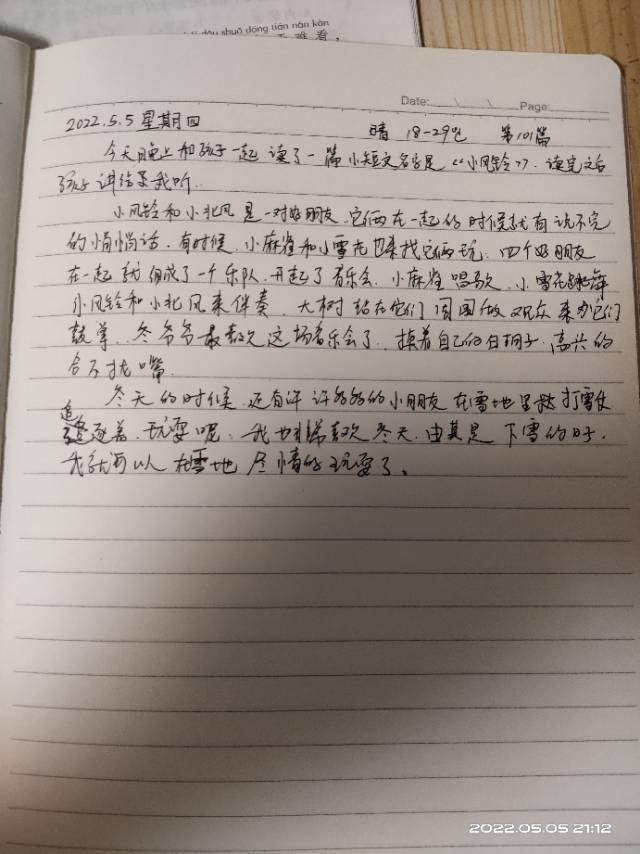 dōu shuō dōng tiān nán kàn
难看，
Date: Page:
2022.5.5 星期四 晴 18-29℃ 第101篇
今天晚上和孩子一起读了一篇小短文名字是《小风铃》.读完之后
孩子讲给我听.
小风铃和小北风是一对好朋友.它俩在一起的时候就有说不完
的悄悄话.有时候.小麻雀和小雪花也来找它俩玩.四个好朋友
在一起就组成了一个乐队.开起了音乐会.小麻雀唱歌.小雪花跳舞
小风铃和小北风来伴奏.大树站在它们周围做观众来为它们
鼓掌.冬爷爷最喜欢这场音乐会了.摸着自己的白胡子.高兴的
合不拢嘴.
冬天的时候.还有许许多多的小朋友在雪地里打雪仗
追逐着.玩耍呢.我也喜欢冬天.由其是下雪的时.
我就可以在雪地尽情的玩耍了。
2022.05.05 21:12